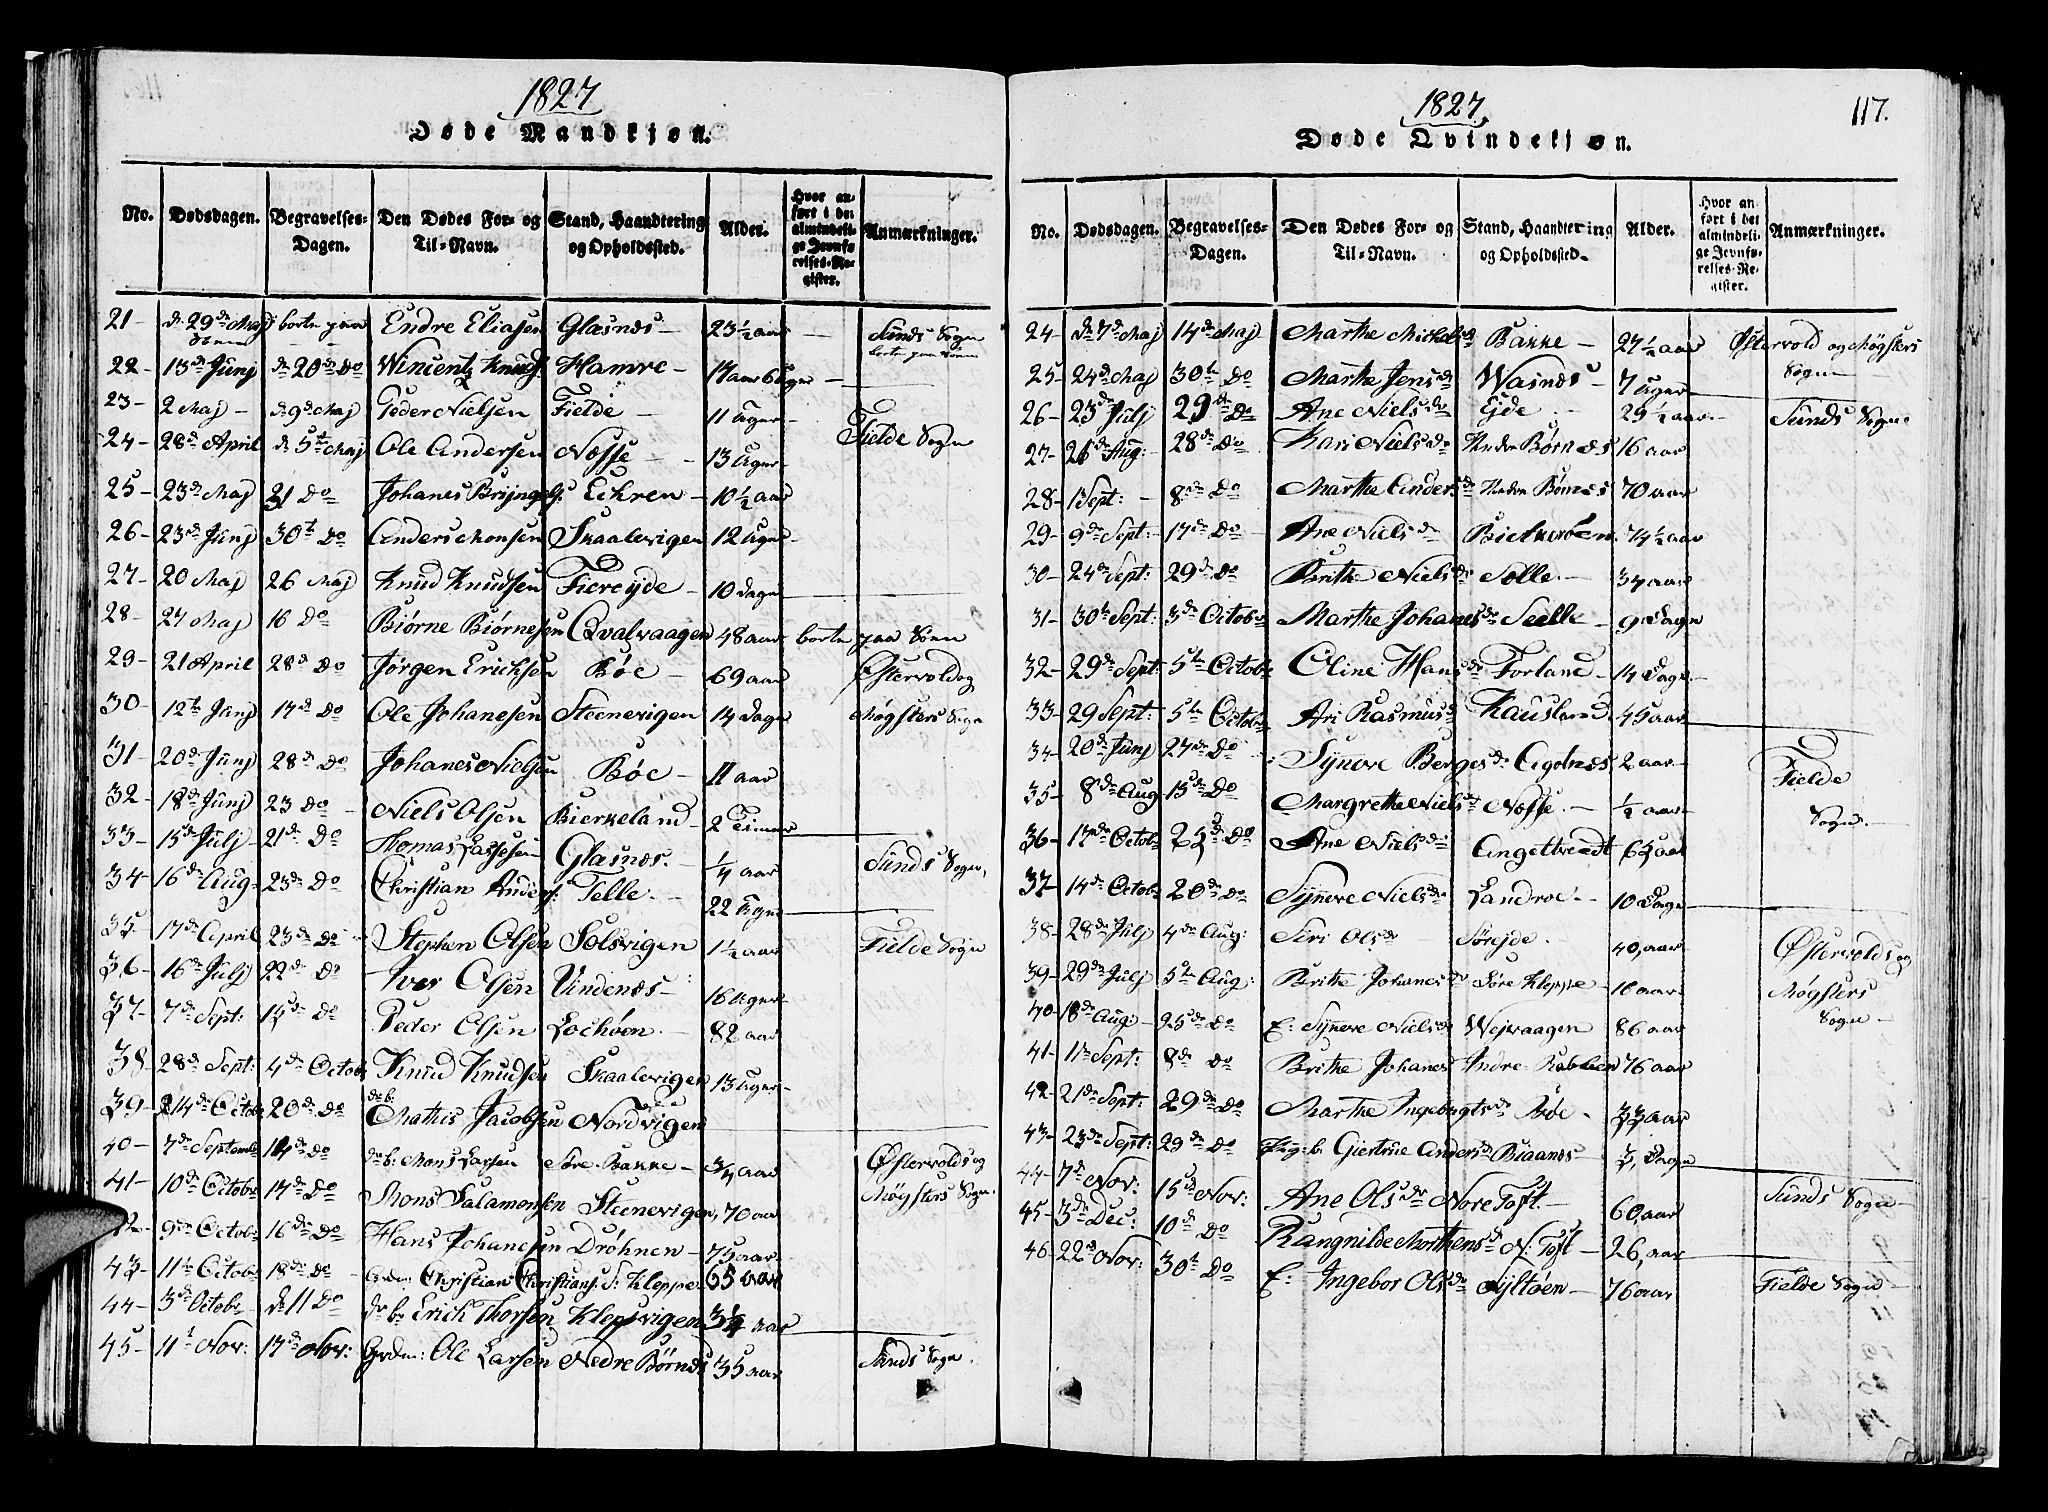 1827
Døde Mandkjøn.
No. Dødsdagen. Begravelses-Dagen. Den Dødes For- og Til-Navn. Stand, Haandtering og Opholdssted. Alder. Hvor anført i det almindelige Jevnførelses-Register. Anmærkninger.
21- d. 29de Maj borte paa Søen Endre Eliasen Glæsnæs- 23½ aar Sunds Sogn borte paa Søen
22- 13de Junj d. 20de Do Wincentz Knuds. Hamre- 17 aar 6 Uger
23- 2 Maj- d. 9de Maj Peder Nielsen Fielde- 11 Uger-
24- 28de April d. 5te Maj Ole Andersen Næsse- 13 Uger- Fielde Sogn
25- 23de Maj 31 Do Johanes Brynge Echren- 10½ aar
26- 23de Junj 30t Do Anders Monsen Skaalevigen 12 Uger-
27- 20 Maj 26 Maj Knud Knudsen Fiereijde- 10 Dage
28- 27 Maj 16 Do Biørne Biørnesen Qvalvaagen 48 aar borte paa Søen
29- 21 April 28de Do Jørgen Erichsen Bøe- 69 aar Østervold og
30- 12te Junj 17de Do Ole Johanesen Steenevigen 14 Dage Møgsters Sogn
31- 20de Junj 28de Do Johanes Nielsen Bøe- 11 aar
32- 18de Junj 23 Do- Niels Olsen Bierkeland- 2 Timer
33- 15de Julj- 21de Do Thomas Lassesen Glæsnæs.- ¼ aar Sunds Sogn,
34- 16de Aug- 23de Do Christian Anders: Telle.- 22 Uger
35- 17de April 23de Do- Stephen Olsen Solsvigen 1½ aar Fielde Sogn
36- 16de Julj 22de Do Iver Olsen Vindenæs- 16 Uger-
37- 7de Sept: 15de Do Peder Olsen Lochøen- 82 aar
38- 28de Sept: 4de Octobr Knud Knudsen Skaalevigen 13 Uger-
39- 14de Octobr 20de Do db: Mathis Jacobsen Nordvigen
40- 7de Septembr 14de Do db: Mons Larsen Søre Bakke- ¾ aar Østervolds og
41- 10de Octobr 17de Do Mons Salamonsen Steenevigen, 70 aar Møgsters Sogn.
42- 9de Octobr 16de Do Hans Johanesen Drøhnen- 75 aar-
43- 11te Octobr 18de Do- Grdm: Christian Christians: S: Kleppe 65 aar
44- 3de Octobr d. 11 Do db: Erich Thorsen Klepsvigen 34 aar
45- 11t Nov: 17de Nov: Grdm: Ole Larsen Nedre Børnæs 35 aar Sunds Sogn.
1827. 117.
Døde Qvindekjøn.
No. Dødsdagen. Begravelses-Dagen. Den Dødes For- og Til-Navn. Stand, Haandtering og Opholdssted. Alder. Hvor anført i det almindelige Jevnførelses-Register. Anmærkninger.
24- D. 7de Maj 14de Maj Marthe Michelsd Bakke- 27½ aar Østervold og Møgsters
25- 24de Maj 30t Do Marthe Jensd Wasnæs- 7 Uger Sogn
26- 23de Julj 29de Do Ane Nielsdr Ejde.- 29½ aar- Sunds Sogn
27- 21de Aug: 28de Do Kari Nielsdr Nedre Børnæs 16 aar
28- 1 Sept:- 8de Do Marthe Andersd Nedre Børnæs 70 aar
29- 9de Sept:- 17de Do Ane Nielsdr 74½ aar
30- 24de Sept: 29de Do Brithe Nielsdr Solle.- 34 aar
31- 30te Sept: 3de Octobr Marthe Johanesdr Selle- 9 Dage
32- 29de Sept: 5te Octobr Oline Hansdr Forland- 14 Dage-
33- 29 Sept: 5te Octobr Ari Rasmusd Kausland 45 aar
34- 20de Junj 27de Do- Synove Bergesdr Agotnæs 2 aar- Fielde
35- 8de Aug 15de Do Margrethe Nielsd Næsse.- ½ aar- Sogn.-
36- 17de Octobr Do Ane Nielsdr Angeltvedt aar
37- 14de Octobr 20de Do Synove Nielsdr Landroe- 10 Dage
38- 28de Julj 4de Aug: Siri Olsdr Sørejde. 40, aar Østervolds og
39- 29de Julj 5te Aug: Brithe Johanesdr Søre Kleppe- 16 aar- Møgsters
40- 18de Aug:- 25de Do E: Synove Nielsd Wejvaagen 86 aar Sogn-
41- 1te Sept: 8de Do Brithe Johanes Indre 76 aar
42- 21de Sept: 29de Do Marthe Ingebrigtsdr Bøe- 33 aar
43- 23de Sept: 29de Do Giertrue Andersd Biaanes Dage
44- 7de Nov: 15de Nov: Ane Olsdr Nore Toft. 60, aar Sunds Sogn-
45- 3de Dec: 10de Do Rangnilde Morthensd N: Toft- 26, aar
46- 22de Nov: 30t Do E: Ingebor Olsdr Syltøen- 76 aar Fielde Sogn-